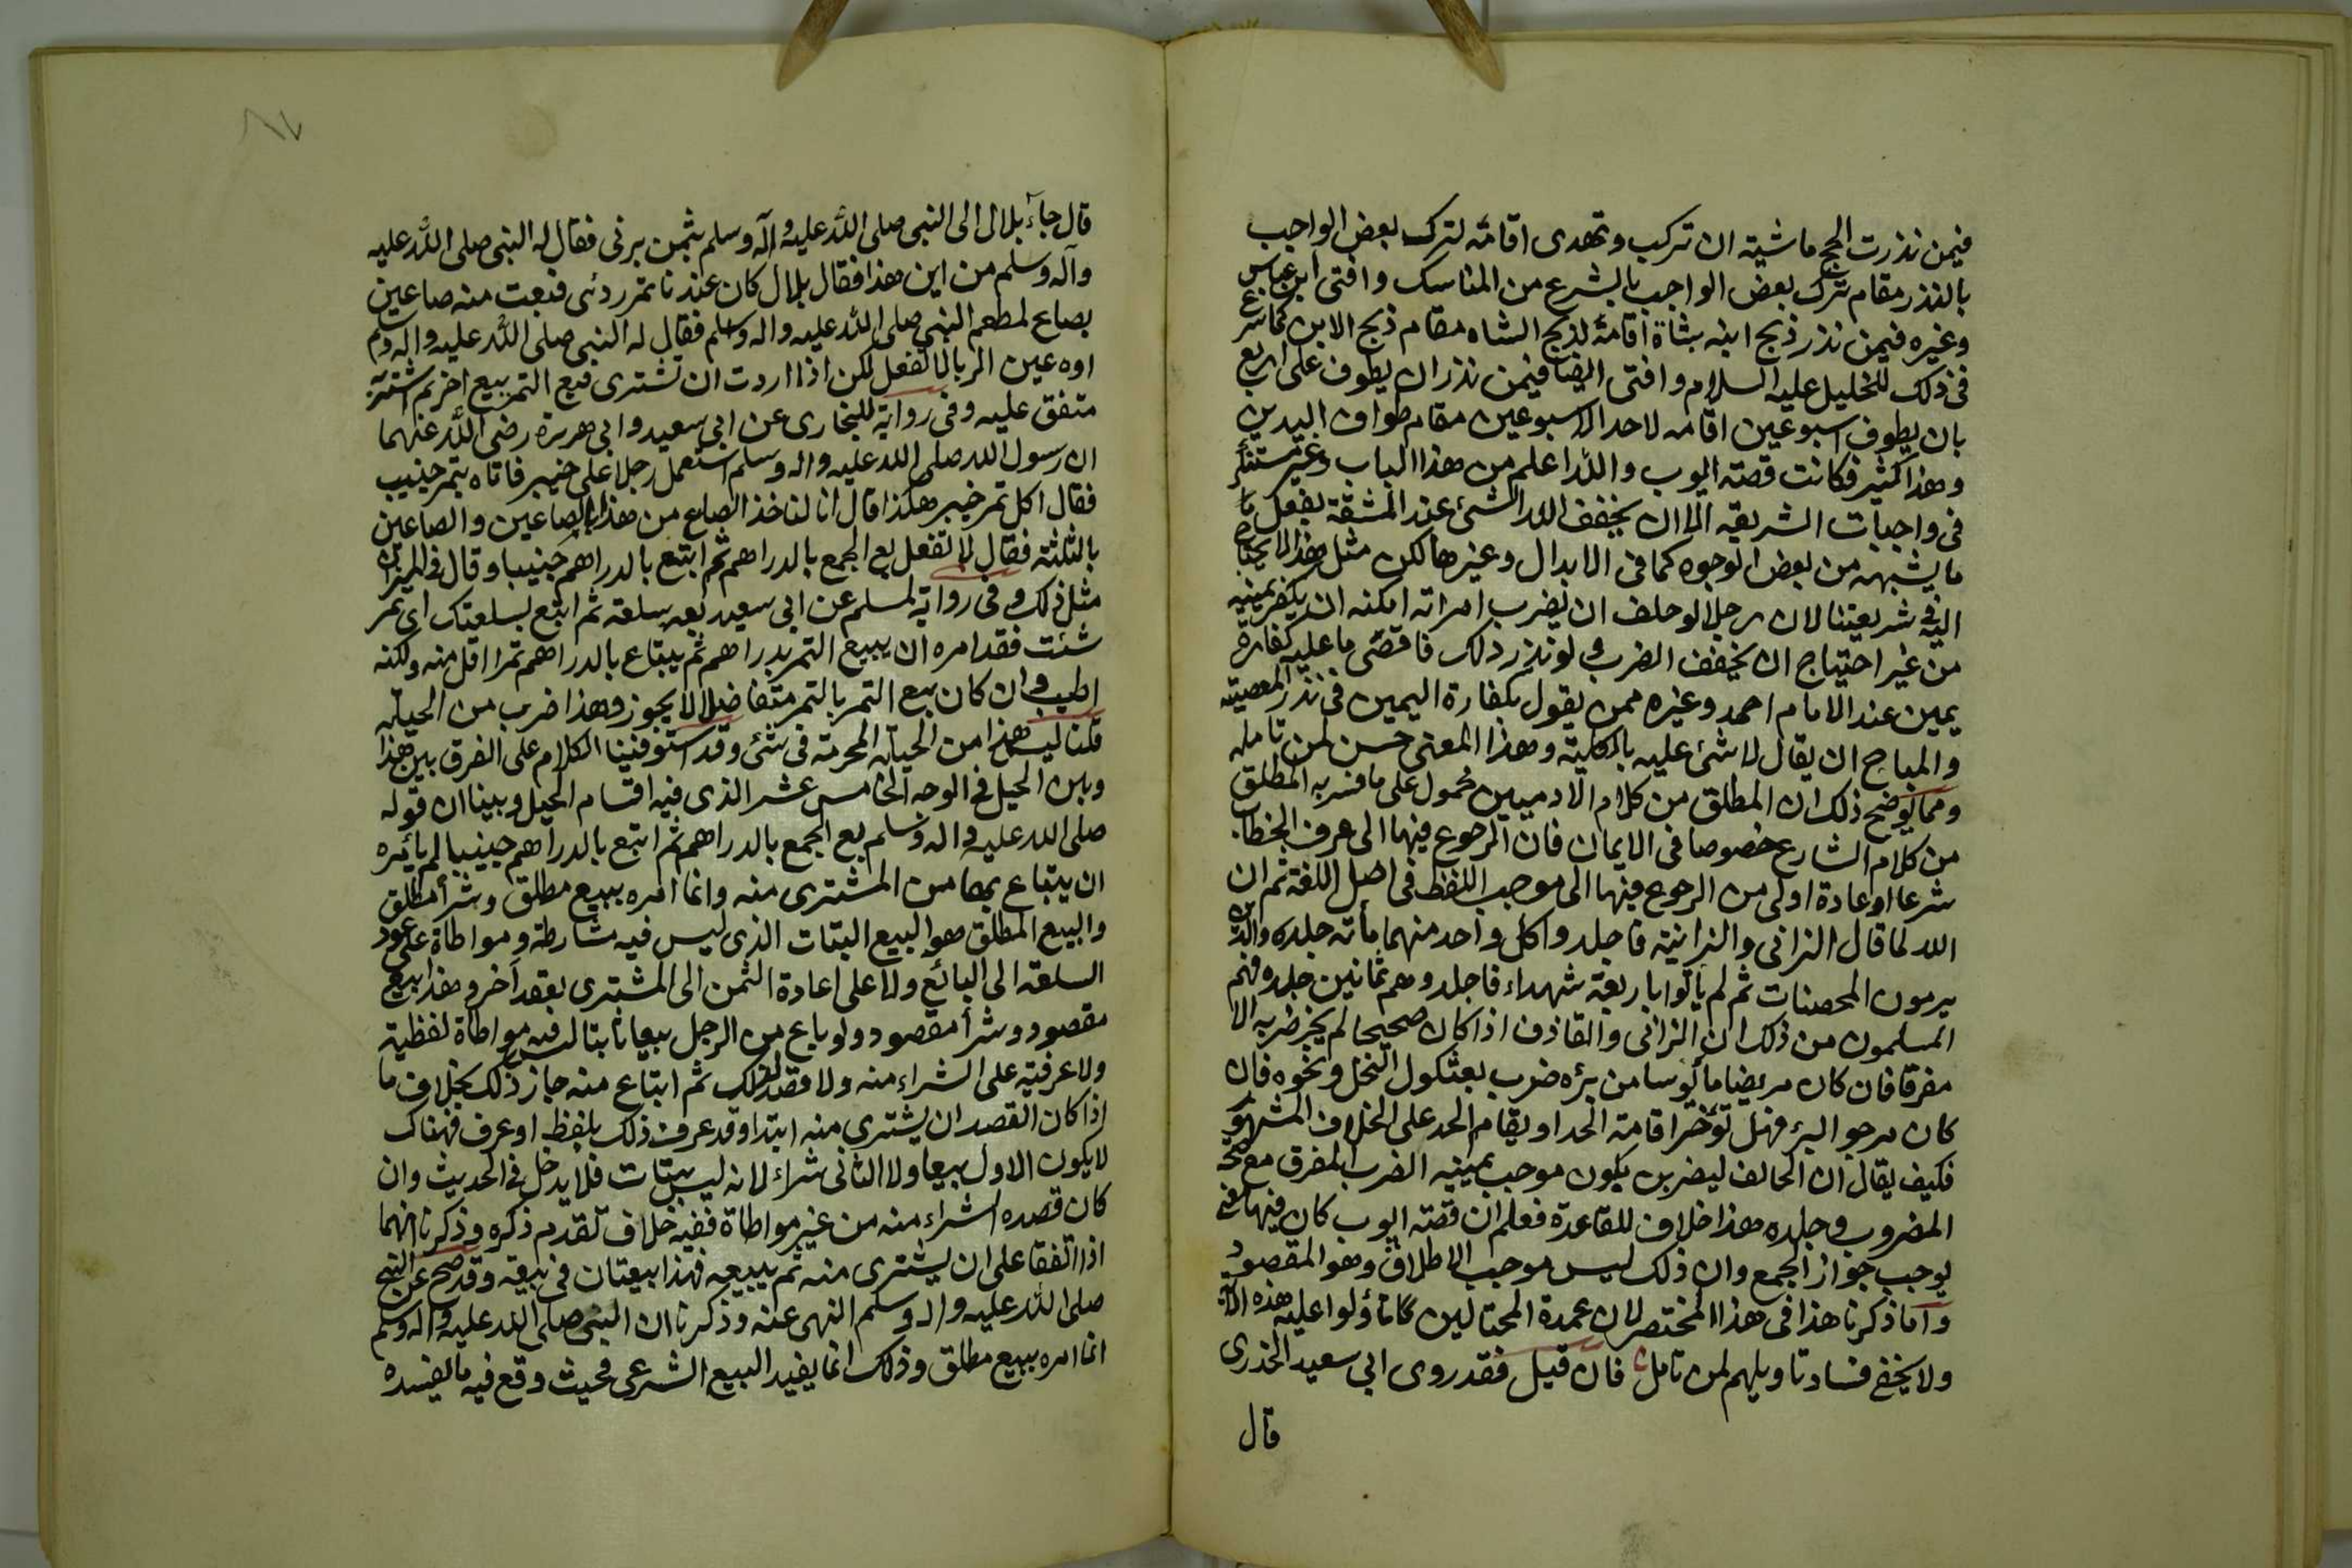 فيمن نذرت الحج ماشية ان تركب وتهدى اقامة لترك بعض الواجب
بالنذر مقام ترك بعض الواجب بالشرع من المناسك وافتى ابن عباس
وغيره فيمن نذر ذبح ابنه بشاة اقامة لذبح الشاه مقام ذبح الابن كما شرع
فى ذلك للخليل عليه السلام وافتى ايضا فيمن نذر ان يطوف على اربع
بان يطوف اسبوعين اقامه لاحد الاسبوعين مقام طواف اليدين
وهذا كثير فكانت قصة ايوب والله اعلم من هذا الباب وغير مستنكر
فى واجبات الشريعه ان يخفف الله الشئ عند المشقة بفعل ما
ما يشبهه من بعض الوجوه كما فى الابدال وغيرها لكن مثل هذا لا يحتاج
اليه فى شريعتنا لان رجلا لو حلف ان يضرب امراته امكنه ان يكفر يمينه
من غير احتياج ان يخفف الضرب ولو نذر ذلك فاقصى ما عليه كفارة
يمين عند الامام احمد وغيره ممن يقول بكفارة اليمين فى نذر المعصية
والمباح ان يقال لا شئ عليه بالكلية وهذا المعنى حسن لمن تامله
ومما يوضح ذلك ان المطلق من كلام الادميين محمول على ما فسر به المطلق
من كلام الشارع خصوصا فى الايمان فان الرجوع فيها الى عرف الخطاب
شرعا او عادة اولى من الرجوع فيها الى موجب اللفظ فى اصل اللغة ثم ان
الله لما قال الزانى والزانية فاجلدوا كل واحد منهما مأئة جلده والذين
يرمون المحصنات ثم لم يأتوا باربعة شهداء فاجلدوهم ثمانين جلده فهم
المسلمون من ذلك ان الزانى والقاذف اذا كان صحيحا لم يجز ضربه الا
مفرقا فان كان مريضا مأيوسا من برئه ضرب بعثكول النخل ونحوه فان
كان مرجو البرء فهل تؤخر اقامة الحد او يقام الحد على الخلاف المشهور
فكيف يقال ان الحالف ليضربن يكون موجب يمينه الضرب المفرق مع صحة
المضروب وجلده هذا خلاف للقاعدة فعلم ان قصة ايوب كان فيها معنى
يوجب جواز الجمع وان ذلك ليس موجب الاطلاق وهو المقصود
وانما ذكرنا هذا فى هذا المختصر لان عمدة المحتالين ما تأولوا عليه هذه الآية
ولا يخفى فساد تاويلهم لمن تامل فان قيل فقد روى ابى سعيد الخدرى
قال
قال جاء بلال الى النبى صلى الله عليه وآله وسلم بثمن برنى فقال له النبى صلى الله عليه
وآله وسلم من اين هذا فقال بلال كان عندنا تمر ردئى فبعت منه صاعين
بصاع لمطعم النبى صلى الله عليه واله وسلم فقال له النبى صلى الله عليه واله وسلم
اوه عين الربا لا تفعل لكن اذا اردت ان تشترى فبع التمر ببيع اخر ثم اشتر به
متفق عليه وفى رواية للبخارى عن ابى سعيد وابى هريرة رضى الله عنهما
ان رسول الله صلى الله عليه واله وسلم استعمل رجلا على خيبر فاتاه بتمر جنيب
فقال اكل تمر خيبر هكذا قال انا لناخذ الصاع من هذا بالصاعين والصاعين
بالثلثة فقال لا تفعل بع الجمع بالدراهم ثم ابتع بالدراهم جنيبا وقال فى الميزان
مثل ذلك وفى رواية لمسلم عن ابى سعيد بعه بسلعة ثم ابتع بسلعتك اى تمر
شئت فقد امره ان يبيع التمر بدراهم ثم يبتاع بالدراهم تمرا اقل منه ولكنه
اطيب وان كان بيع التمر بالتمر متفاضلا لا يجوز وهذا ضرب من الحيلة
قلنا ليس هذا من الحيلة المحرمة فى شئى وقد استوفينا الكلام على الفرق بين هذا
وبين الحيل فى الوجه الخامس عشر الذى فيه اقسام الحيل وبينا ان قوله
صلى الله عليه واله وسلم بع الجمع بالدراهم ثم ابتع بالدراهم جنيبا لم يأمره
ان يبتاع بها من المشترى منه وانما امره ببيع مطلق وشرأ مطلق
والبيع المطلق هو البيع البتات الذى ليس فيه مشارطة ومواطاة على عود
السلعه الى البائع ولا على اعادة الثمن الى المشترى بعقد آخر وهذا بيع
مقصود وشرأ مقصود ولو باع من الرجل بيعا بتا ليس فيه مواطاة لفظية
ولا عرفية على الشراء منه ولا قصد لذلك ثم ابتاع منه جاز ذلك بخلاف ما
اذا كان القصد ان يشترى منه ابتدا وقد عرف ذلك بلفظ او عرف فهناك
لا يكون الاول بيعا ولا الثانى شراء لانه ليس ببتات فلا يدخل فى الحديث وان
كان قصده الشراء منه من غير مواطاة ففيه خلاف تقدم ذكره وذكرنا انهما
اذا اتفقا على ان يشترى منه ثم يبيعه فهذا بيعتان فى بيعة وقد صح عن النبى
صلى الله عليه واله وسلم النهى عنه وذكرنا ان النبى صلى الله عليه واله وسلم
انما امره ببيع مطلق وذلك انما يفيد البيع الشرعى فحيث وقع فيه ما يفسده